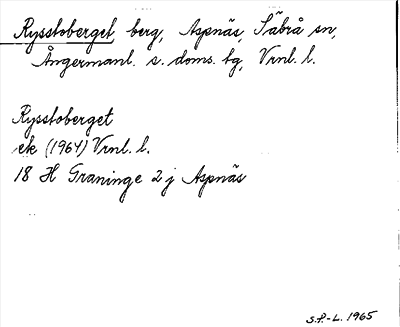 Rysstoberget berg, Aspnäs, Säbrå sn,
Ångermanl. s. doms. tg, Vrnl. l.
Rysstoberget
ek (1964) Vrnl. l.
18 H Graninge 2 j Aspnäs
S.P.-L. 1965